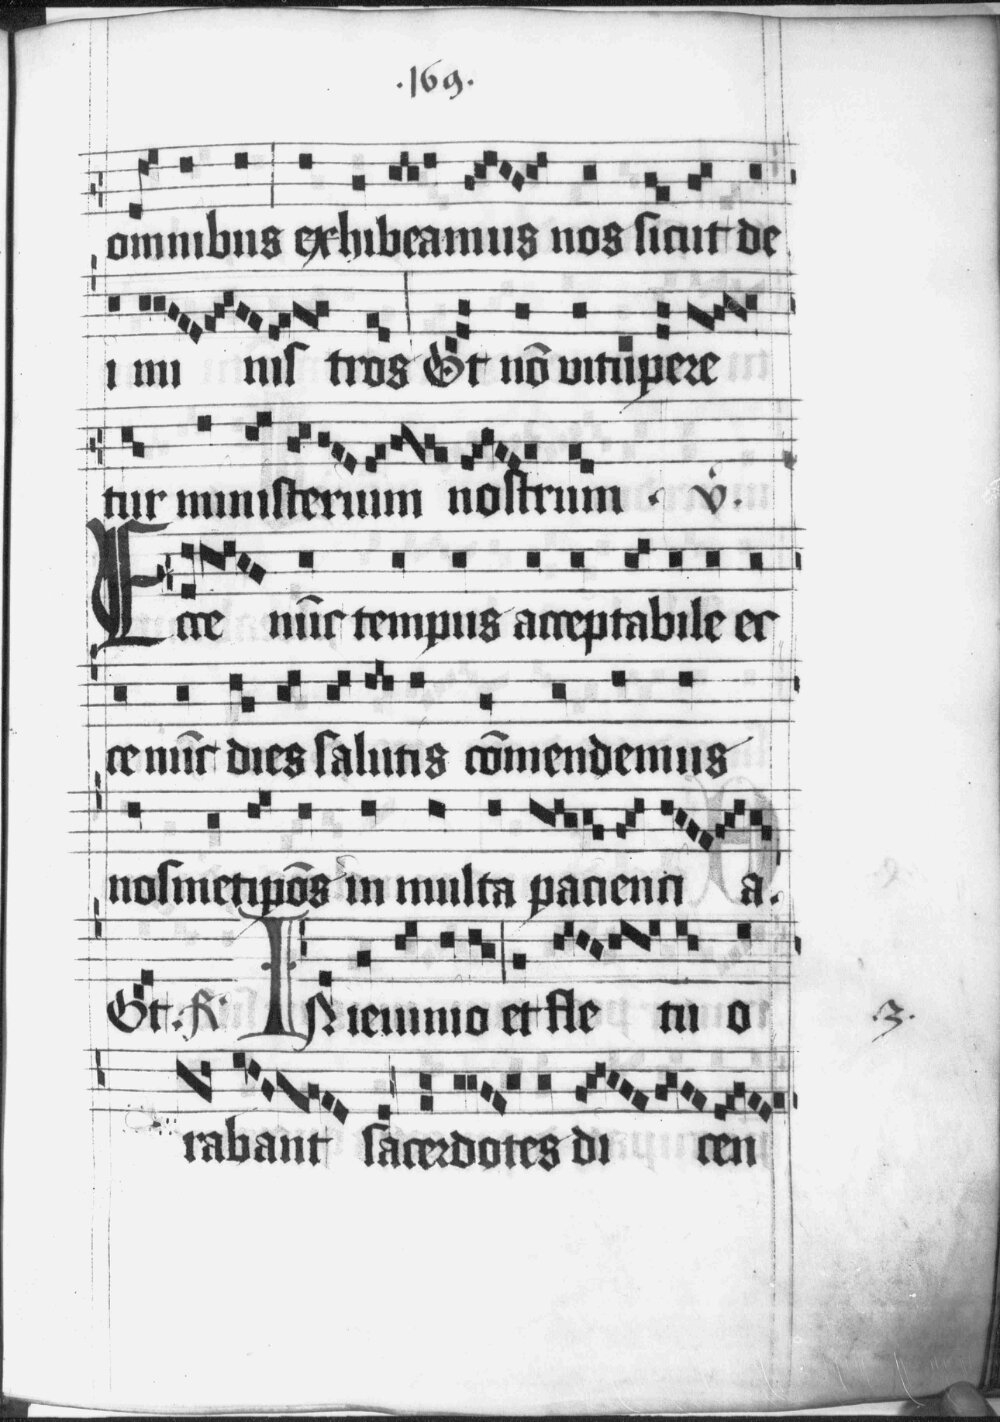 .169.
omnibus exhibeamus nos sicut de
i mi nis tros Et nō vitupere
tur ministerium nostrum . v̇.
Ecce nūc tempus acceptabile ec
ce nūc dies salutis cōmendemus
nosmetipōs in multa pacienti a.
Et. R. IN ieiunio et fle tu o
.3.
rabant sacerdotes di cen